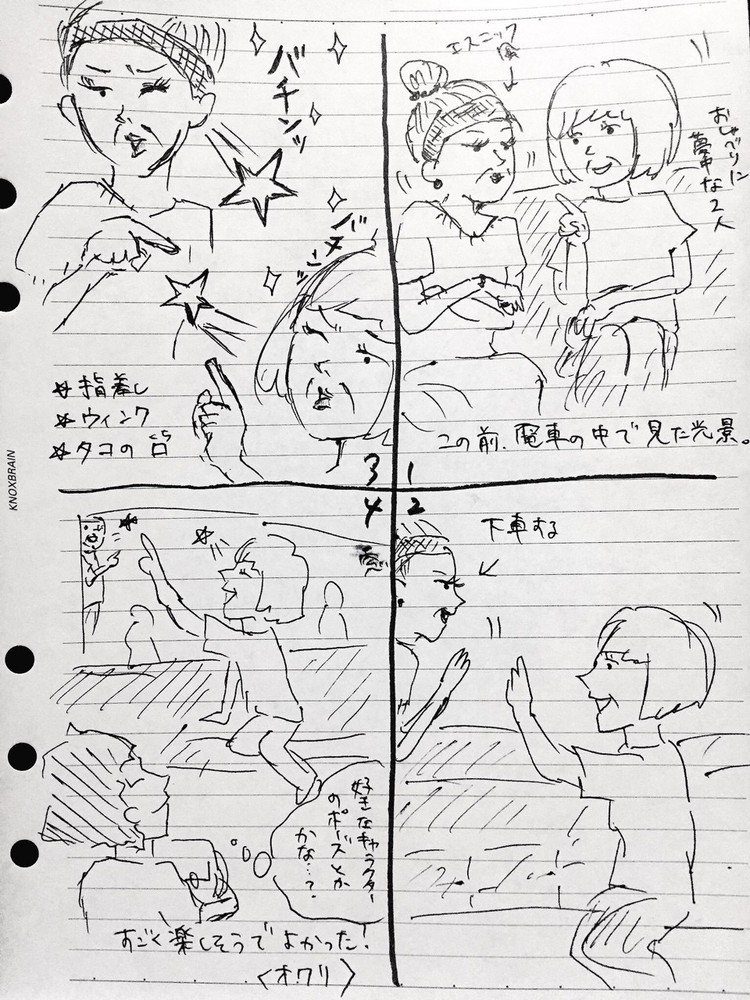 1
エスニック
風
おしゃべりに
夢中な2人
この前、電車の中で見た光景。
2
下車する
3
バチンッ
バチンッ
☆指差し
☆ウィンク
☆タコの口
4
好きなキャラクター
のポーズとか
かな…?
すごく楽しそうでよかった!
〈オワリ〉
KNOXBRAIN